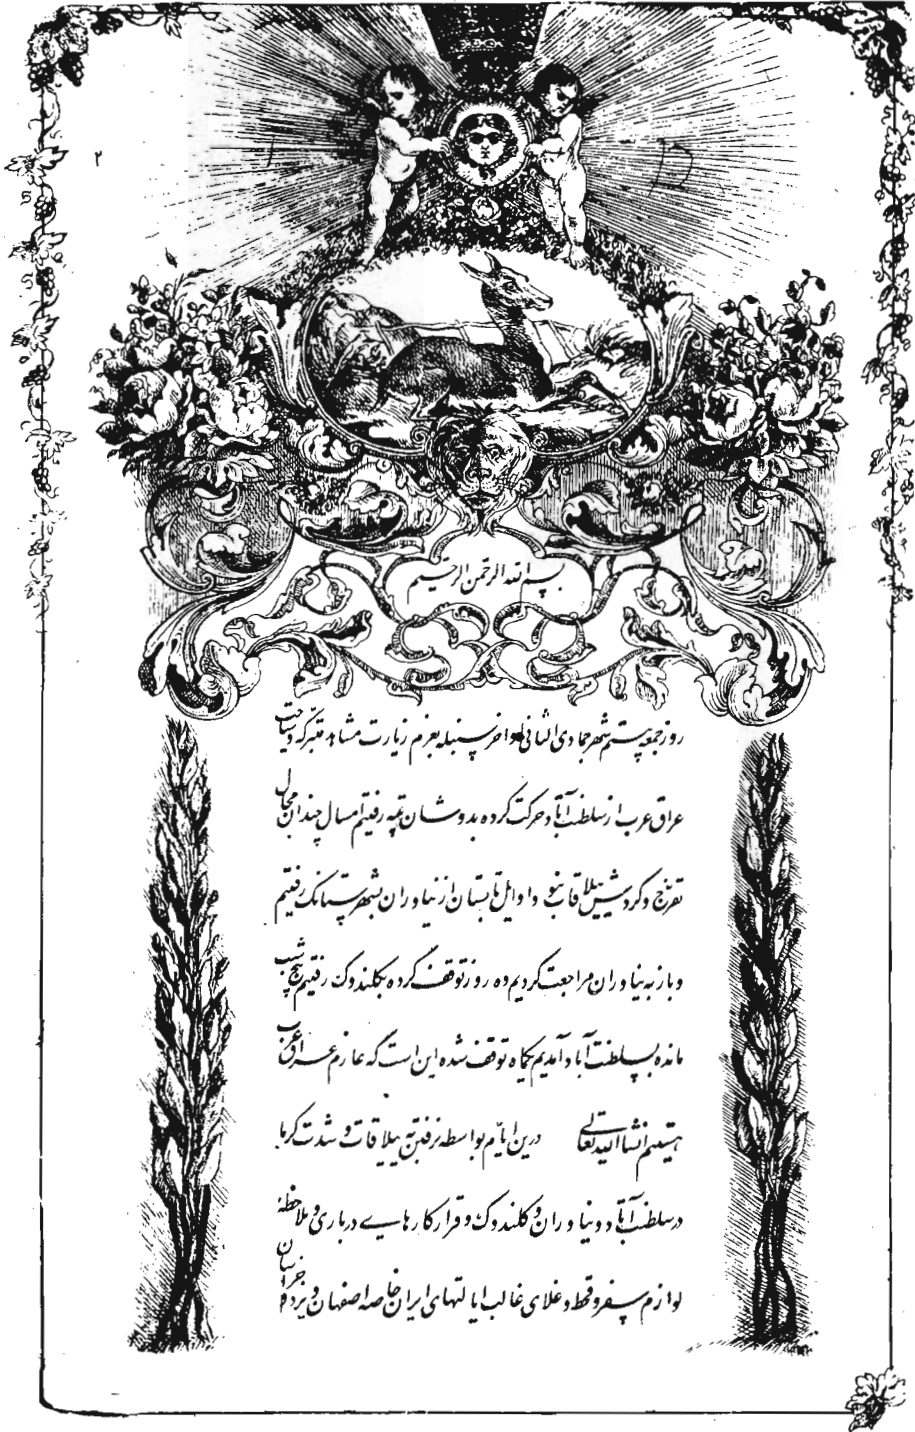 ۲
بسم الله الرحمن الرحیم
روز جمعه بیستم شهر جمادی الثانی اواخر سنبله بعزم زیارت مشاهد متبرکه و سیاحت
عراق عرب از سلطنت‌آباد حرکت کرده بدوشان تپه رفتیم امسال چندان مجال
تفرج و گردش ییلاقات نبود اوایل تابستان از نیاوران بشهرستانک رفتیم
و باز به نیاوران مراجعت کردیم ده روز توقف کرده بگلندوک رفتیم پنج شب
مانده بسلطنت آباد آمدیم یکماه توقف شده این است که عازم عراق عرب
هستیم انشاالله تعالی درین ایام بواسطه نرفتن به ییلاقات و شدت گرما
در سلطنت آباد و نیاوران و گلندوک و قرار کارهای درباری و ملاحظه
لوازم سفر و قحط و غلای غالب ایالتهای ایران خاصه اصفهان و یزد و خراسان